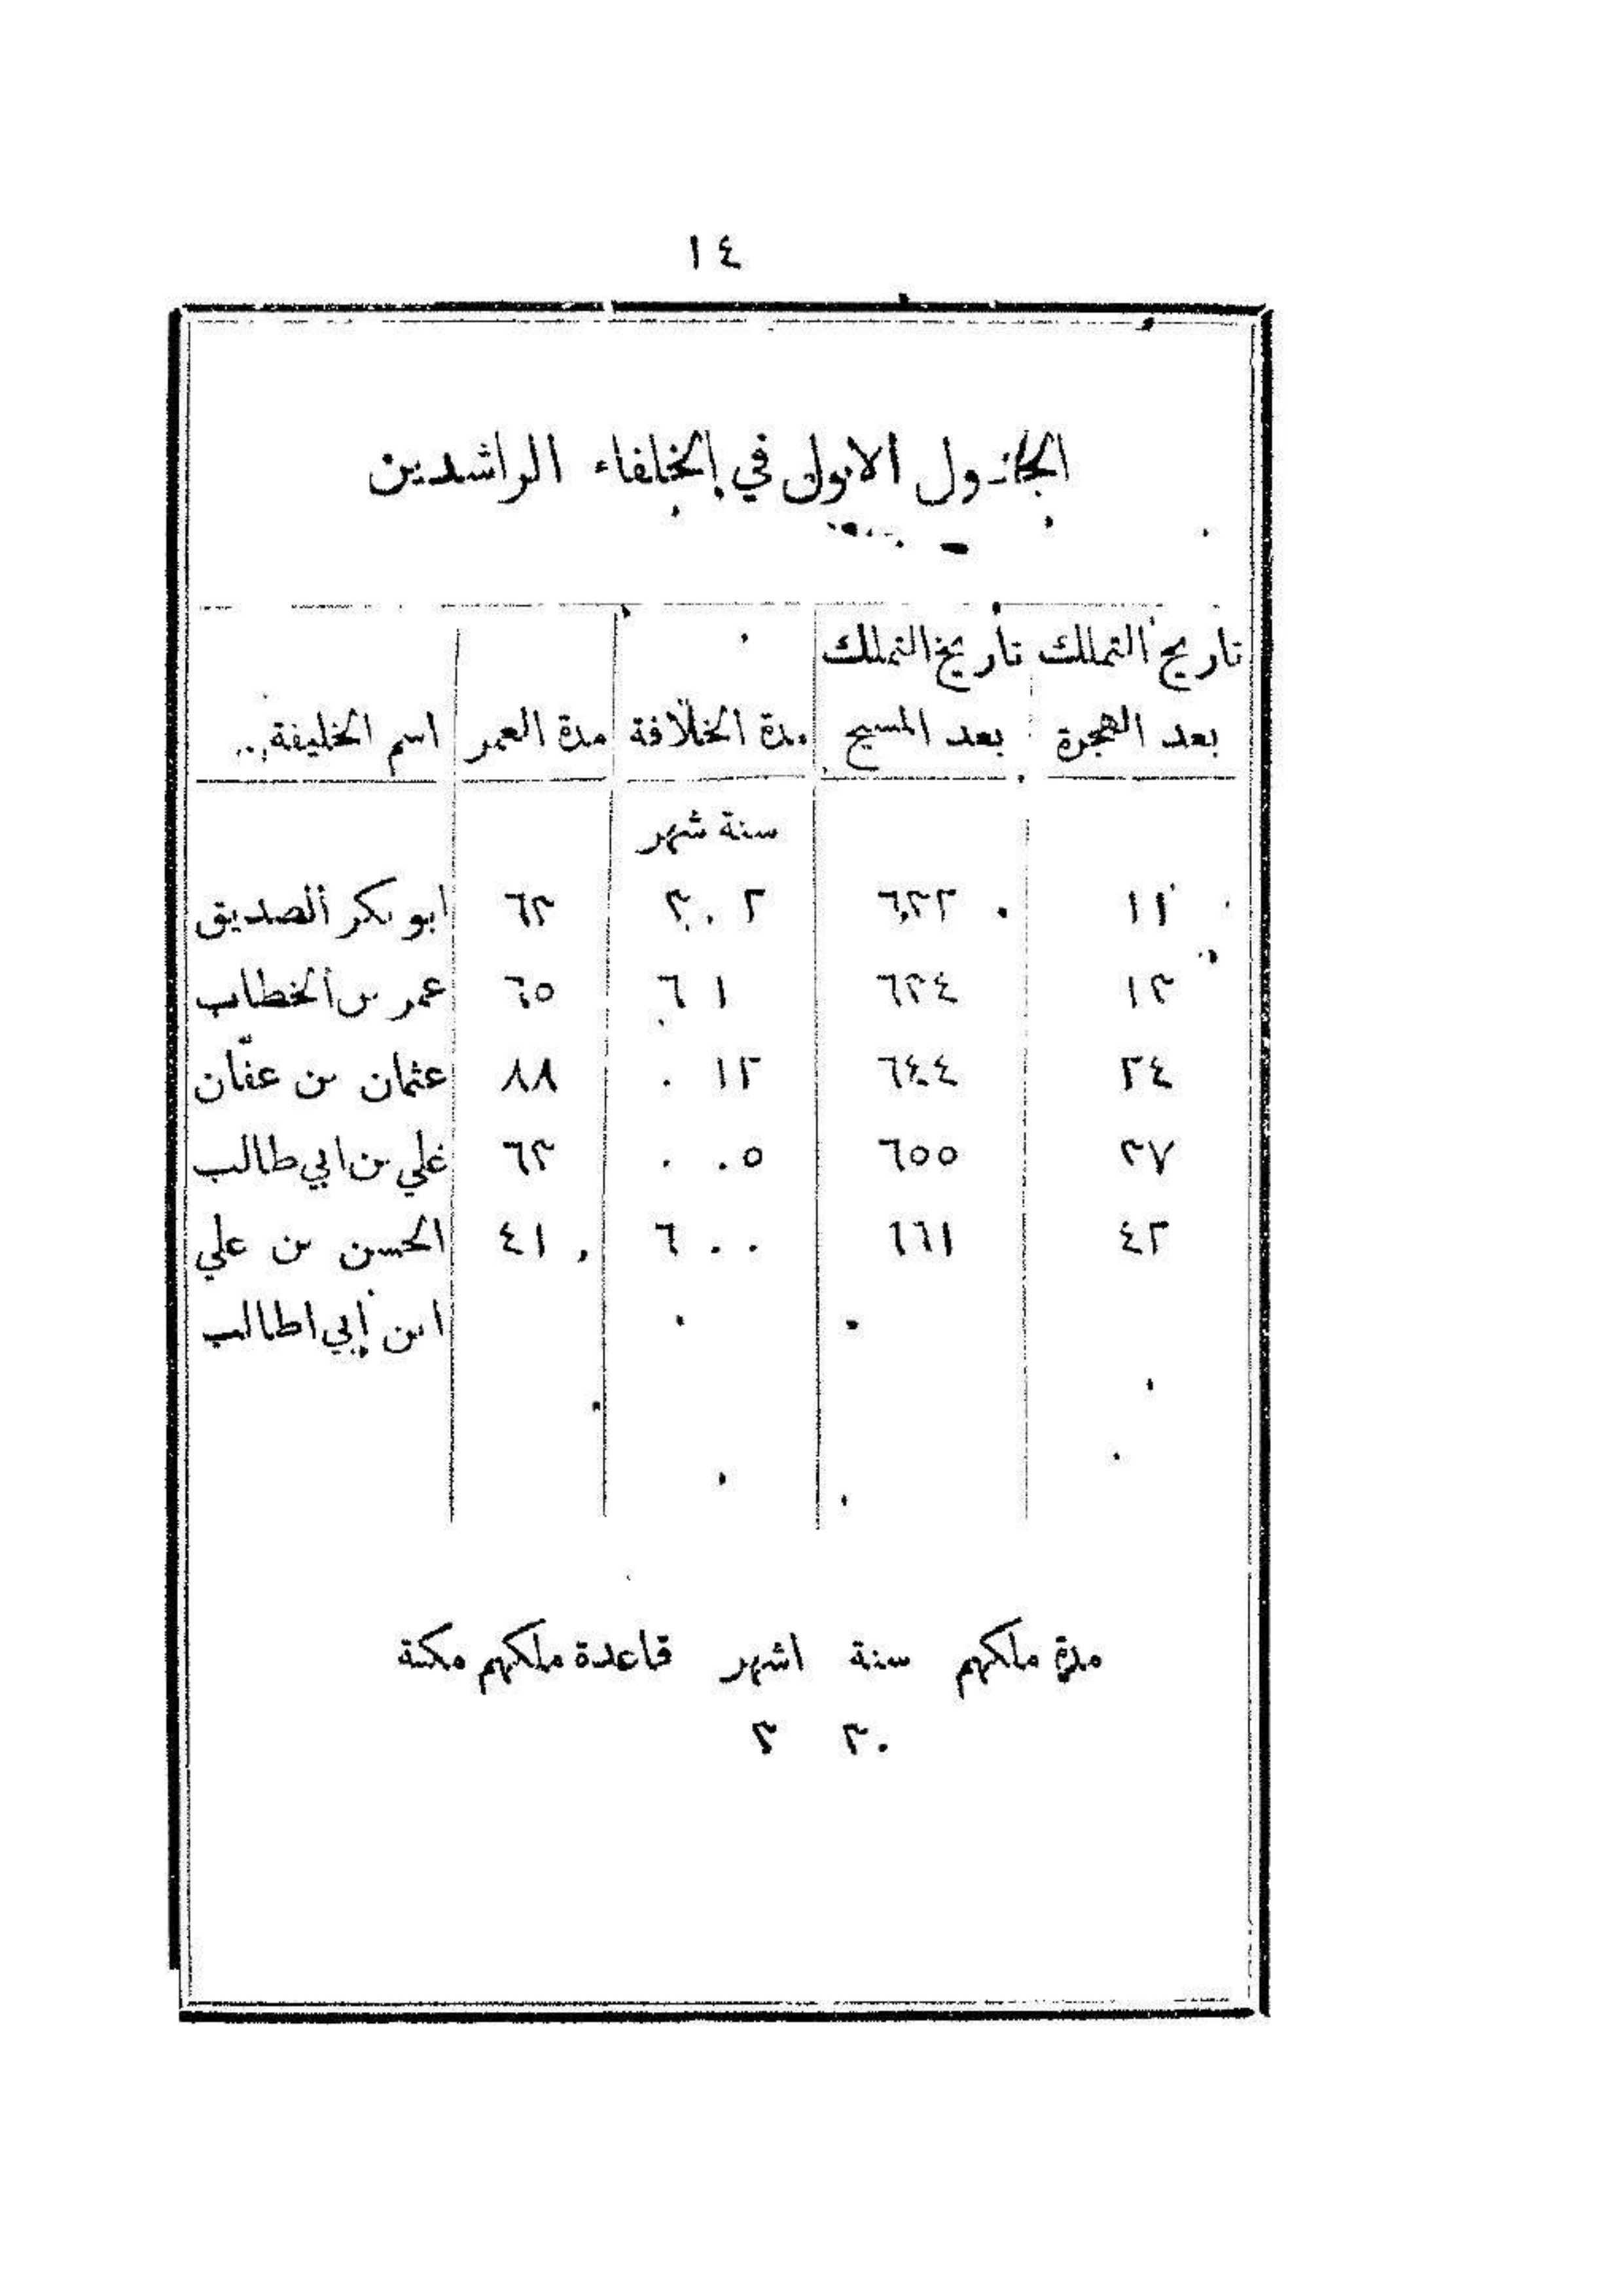 ١٤
الجدول الاول في الخلفاء الراشدين
تاريخ التملك تاريخ التملك
بعد الهجرة بعد المسيح مدة الخلافة مدة العمر اسم الخليفة
سنة شهر
١١ ٦٣٢ ٢ ٣ ٦٣ ابو بكر الصديق
١٣ ٦٣٤ ١ ٦ ٦٥ عمر بن الخطاب
٢٤ ٦٤٤ ١٢ ٠ ٨٨ عثمان بن عفّان
٣٧ ٦٥٥ ٠٥ ٠ ٦٣ علي بن ابي طالب
٤٢ ٦٦١ ٠٠ ٦ ٤١ الحسن بن علي
ابن ابي طالب
مدة ملكهم سنة اشهر قاعدة ملكهم مكة
٣٠ ٣